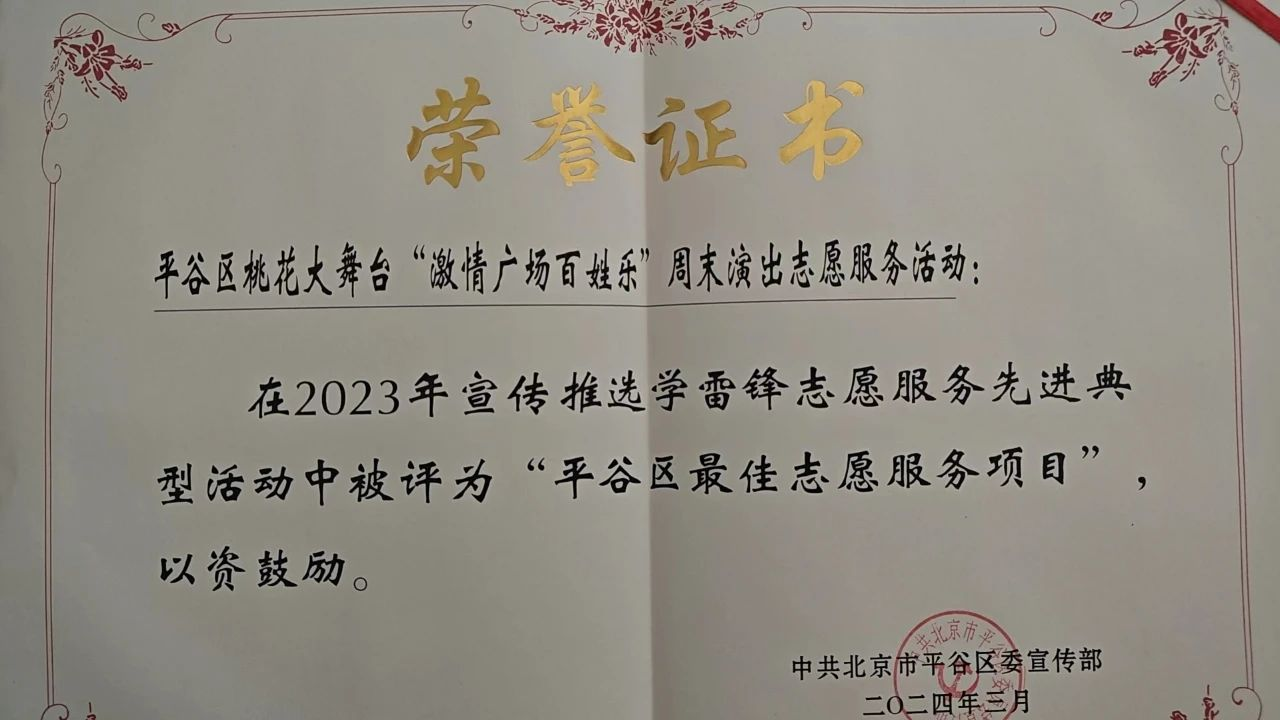 荣誉证书
平谷区桃花大舞台“激情广场百姓乐”周末演出志愿服务活动：
在2023年宣传推选学雷锋志愿服务先进典
型活动中被评为“平谷区最佳志愿服务项目”，
以资鼓励。
中共北京市平谷区委宣传部
二〇二四年三月